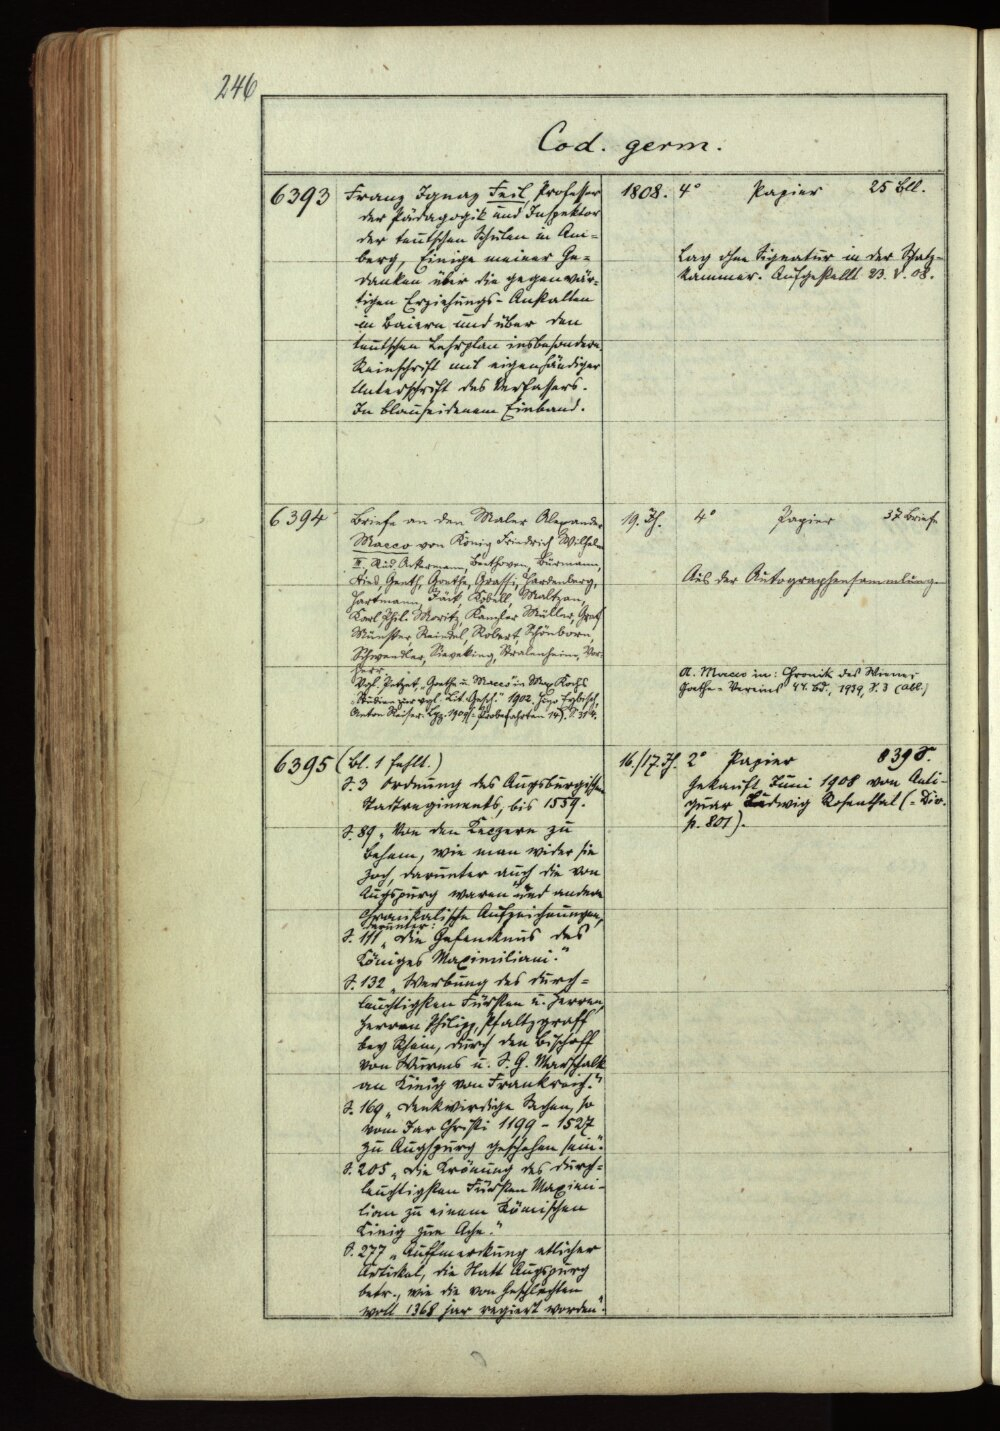 246
Cod. germ.
6393
Franz Ignaz Feil, Professor
der Pädagogik und Inspektor
der teutschen Schulen in Am-
berg, Einige meiner Ge-
danken über die gegenwär-
tigen Erziehungs-Anstalten
in Baiern und über den
teutschen Lehrplan insbesondere.
Reinschrift mit eigenhändiger
Unterschrift des Verfassers.
In blauseidenem Einband.
1808. 4° Papier 25 Bll.
Lag ohne Signatur in der Schatz-
kammer. Aufgestellt 23. V. 08.
6394
Briefe an den Maler Alexander
Macco von König Friedrich Wilhelm
III, Ackermann, Beethoven, Burmann,
Genth, Goethe, Grassi, Hardenberg,
Hartmann, Jäck, Kobell, Maltzan,
Karl Phil. Moritz, Kanzler Müller, Graf
Münster, Reindel, Robert, Schönborn,
Schwendler, Sieveking, Stralenheim, Vor-
herr.
Vgl. Petzet, "Goethe u. Macco" in Max Kochs
"Studien zur vgl. Lit. Gesch." 1902. Hugo Eybisch,
Anton Reiser. Lpz. 1909 (= Probefahrten 14).
19. Jh. 4° Papier 37 Briefe
Aus der Autographensammlung.
A. Macco in: Chronik des Wiener
Goethe-Vereins 44. Bd., 1939, S. 3 (Abb.)
6395
(Bl. 1 fehlt.)
S. 3 Ordnung des Augsburgischen
Stattregiments, bis 1559.
S. 89 „Von den Keczern zu
Behem, wie man wider sie
zoch, darunter auch die von
Augspurg waren" und andere
chronikalische Aufzeichnungen,
darunter:
S. 111 „Die Gefencknus des
Königes Maximiliani."
S. 132 „Werbung des durch-
leuchtigsten Fürsten u. Herren,
Herren Philipp, Pfaltzgraff
bey Rhein, durch den Bischoff
von Wurms u. S. G. Marschalk
an Künig von Frankreich."
S. 169 „Denkwirdige Sachen, so
vom Jar Christi 1199 - 1527
zu Augspurg geschehen sein".
S. 205 „Die Krönung des durch-
leuchtigsten Fürsten Maximi-
lian zu einem Römischen
Künig zue Ache."
S. 277 „Auffmerckung etlicher
Artickel, die Statt Augspurg
betr., wie die von Geschlechten
woll 1368 jar regiert worden".
16./17. Jh. 2° Papier 839 S.
Gekauft Juni 1908 von Anti-
quar Ludwig Rosenthal (= Div.
p. 801).